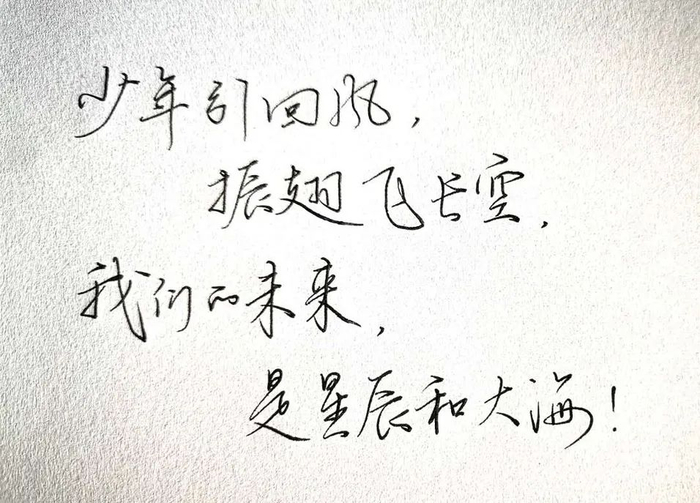 少年引回风，
振翅飞长空，
我们的未来，
是星辰和大海！